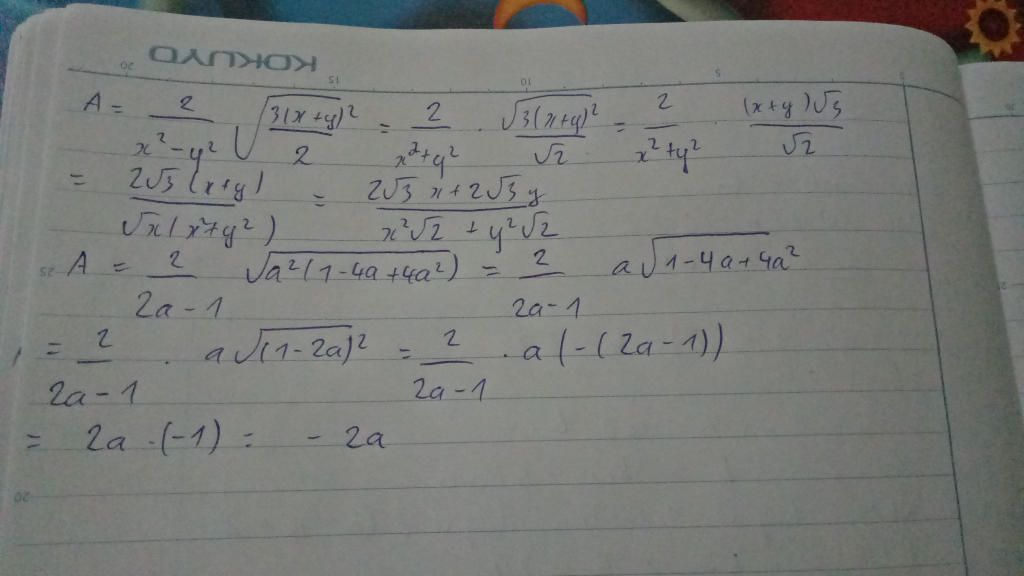 KOKUYO
20 15 10 5
A = \frac{2}{x^2-y^2} \sqrt{\frac{3(x+y)^2}{2}} = \frac{2}{x^2+y^2} \cdot \frac{\sqrt{3(x+y)^2}}{\sqrt{2}} = \frac{2}{x^2+y^2} \cdot \frac{(x+y)\sqrt{3}}{\sqrt{2}}
= \frac{2\sqrt{3}(x+y)}{\sqrt{x}(x^2+y^2)} = \frac{2\sqrt{3}x+2\sqrt{3}y}{x^2\sqrt{2}+y^2\sqrt{2}}
25 A = \frac{2}{2a-1} \sqrt{a^2(1-4a+4a^2)} = \frac{2}{2a-1} a\sqrt{1-4a+4a^2}
= \frac{2}{2a-1} \cdot a\sqrt{(1-2a)^2} = \frac{2}{2a-1} \cdot a(-(2a-1))
= 2a \cdot (-1) = - 2a
20